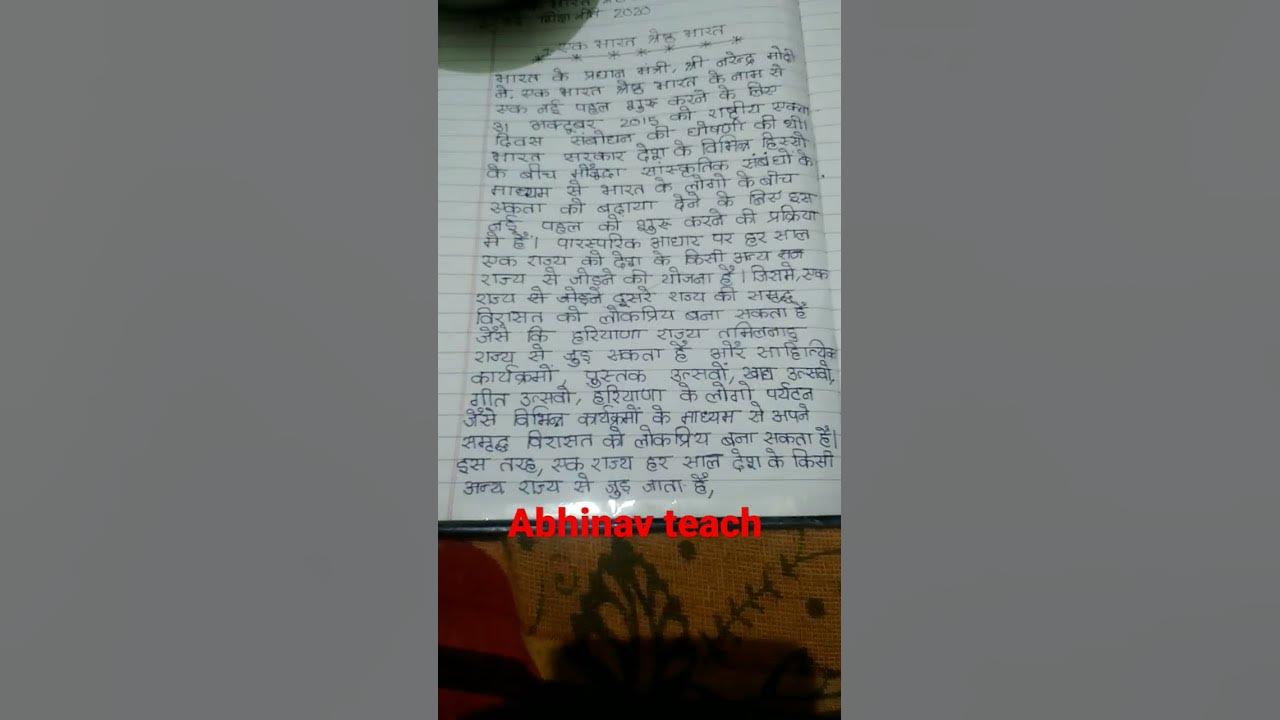 2020
एक भारत श्रेष्ठ भारत
भारत के प्रधान मंत्री, श्री नरेन्द्र मोदी
ने, एक भारत श्रेष्ठ भारत के नाम से
एक नई पहल शुरू करने के लिए
31 अक्टूबर 2015 को राष्ट्रीय एकता
दिवस संबोधन की घोषणा की थी।
भारत सरकार देश के विभिन्न हिस्सो
के बीच मौजूदा सांस्कृतिक संबंधों के
माध्यम से भारत के लोगो के बीच
एकता को बढ़ाया देने के लिए इस
नई पहल को शुरू करने की प्रक्रिया
मे हैं। पारस्परिक आधार पर हर साल
एक राज्य को देश के किसी अन्य
राज्य से जोड़ने की योजना है। जिसमे, एक
राज्य से जोड़ने दूसरे राज्य की समृद्ध
विरासत को लोकप्रिय बना सकता है
जैसे कि हरियाणा राज्य तमिलनाडु
राज्य से जुड़ सकता है और साहित्यिक
कार्यक्रमों, पुस्तक उत्सवों, खाद्य उत्सवो,
गीत उत्सवो, हरियाणा के लोगो पर्यटन
जैसे विभिन्न कार्यक्रमों के माध्यम से अपने
समृद्ध विरासत को लोकप्रिय बना सकता है।
इस तरह, एक राज्य हर साल देश के किसी
अन्य राज्य से जुड़ जाता है,
Abhinav teach